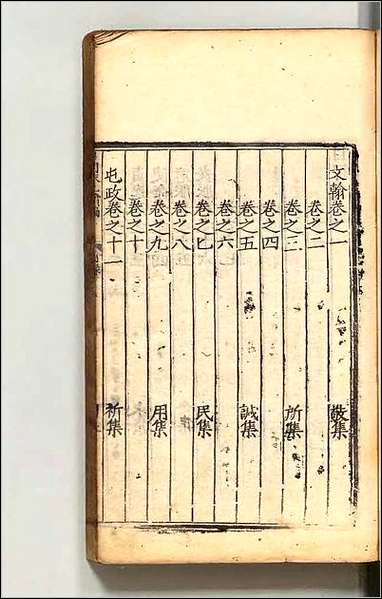 文翰卷之一 敬集
卷之二
卷之三 所集
卷之四
卷之五 誠集
卷之六
卷之七 民集
卷之八
卷之九 用集
卷之十
屯政卷之十一 祈集